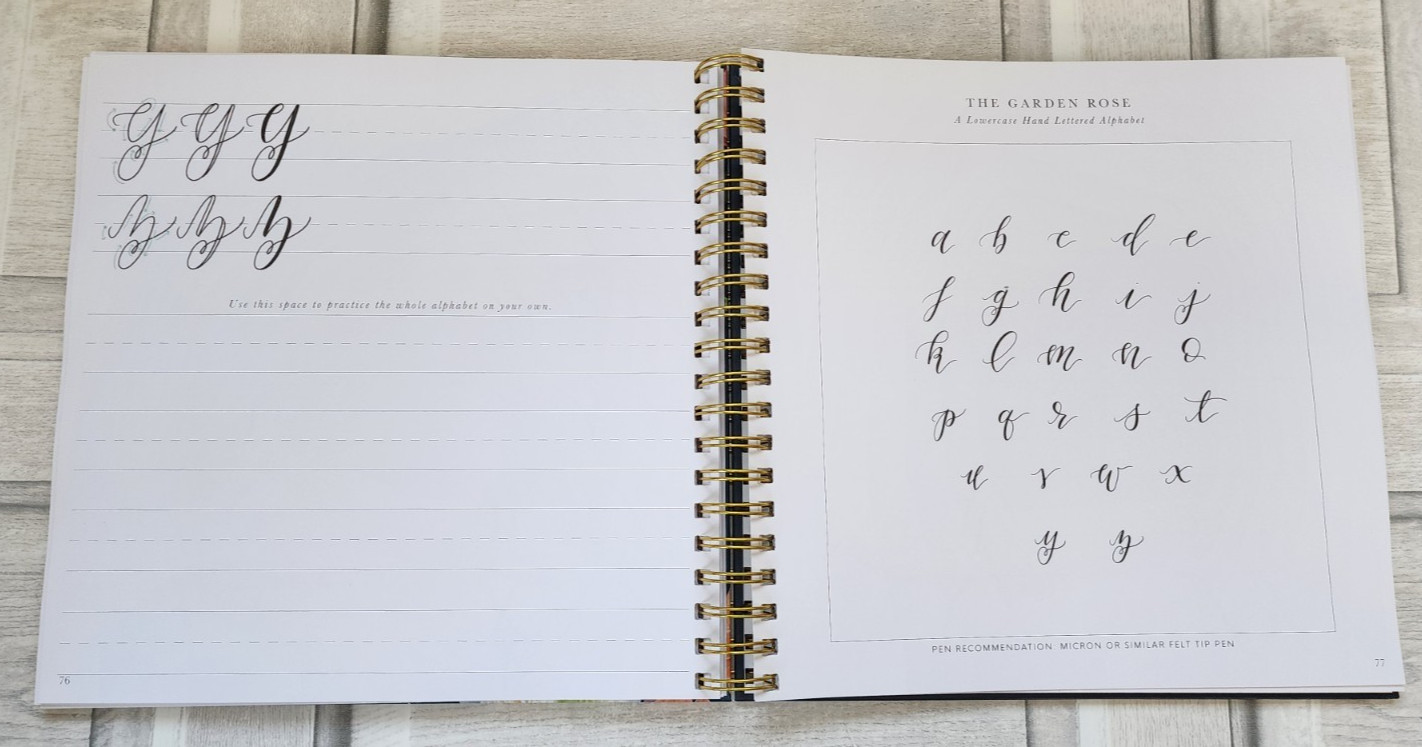 y y y
z z z
Use this space to practice the whole alphabet on your own.
76
THE GARDEN ROSE
A Lowercase Hand Lettered Alphabet
a b c d e
f g h i j
k l m n o
p q r s t
u v w x
y z
PEN RECOMMENDATION: MICRON OR SIMILAR FELT TIP PEN
77